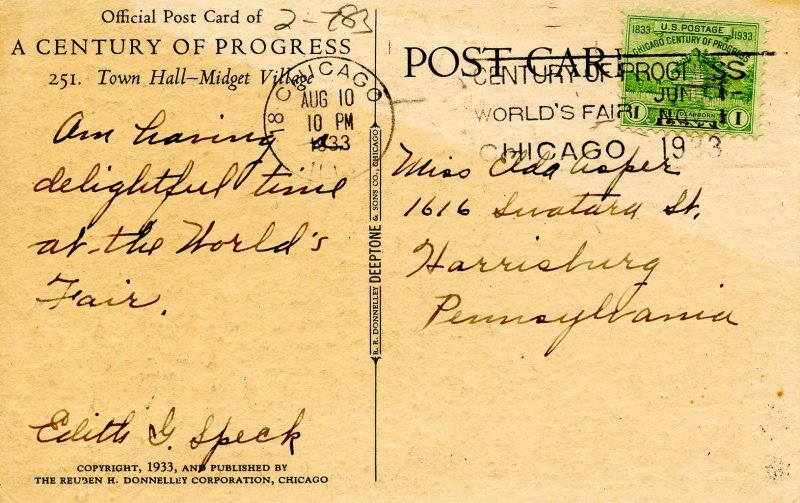 Official Post Card of
2-783
A CENTURY OF PROGRESS
251. Town Hall—Midget Village
CHICAGO
AUG 10
10 PM
1933
Am having a
delightful time
at the World's
Fair.
Edith G. Speck
COPYRIGHT, 1933, AND PUBLISHED BY
THE REUBEN H. DONNELLEY CORPORATION, CHICAGO
R. R. DONNELLEY DEEPTONE & SONS CO., CHICAGO
POST CARD
U.S. POSTAGE
1833 1933
CHICAGO CENTURY OF PROGRESS
1 1
CENTURY OF PROGRESS
WORLD'S FAIR
JUN 1
CHICAGO 1933
Miss Elda
1616 Swatara St.
Harrisburg
Pennsylvania